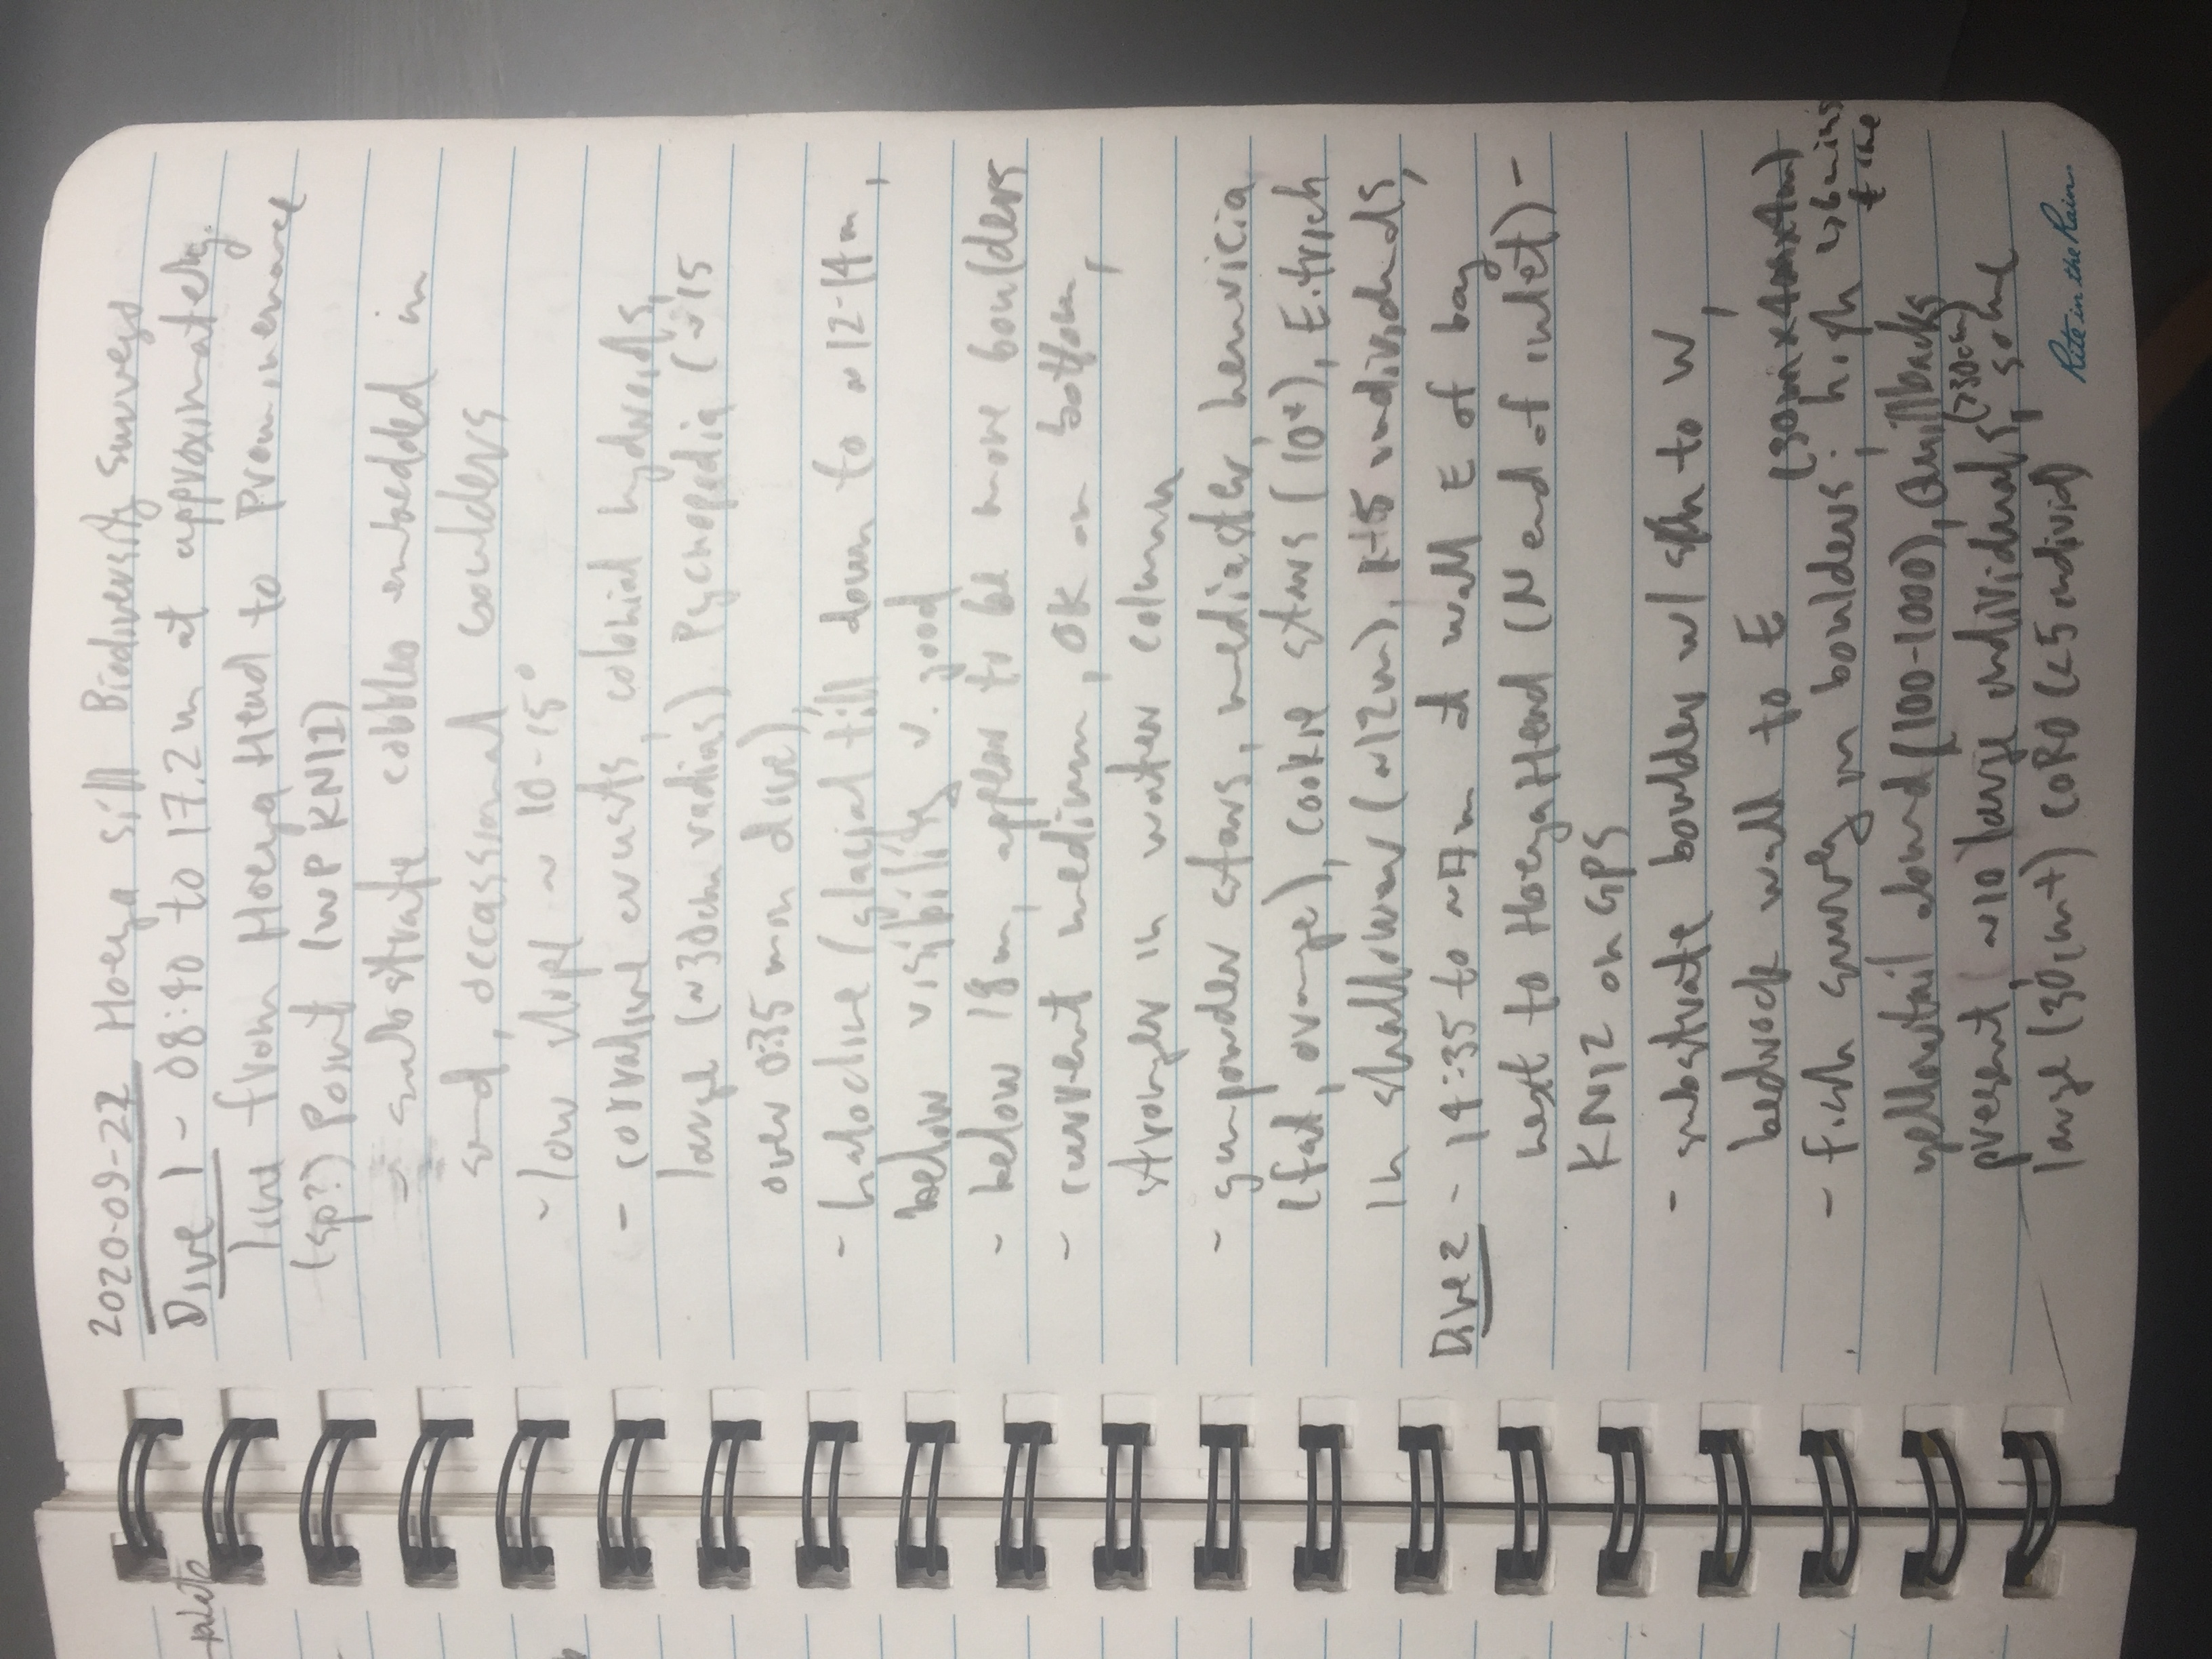 plate
2020-09-22 Hoeya sill Biodiversity surveys
Dive 1 - 08:40 to 17.2m at approximately
line from Hoeya Head to Prominenance
(sp?) Point (WP KN11)
- substrate cobbles embedded in
sand, occassional boulders
- low slope ~ 10-15°
- corraline crusts, colonial hydroids,
large (~30cm radius) Pycnopodia (~15
over 0:35 min dive),
- halocline / glacial till down to ~12-14m,
below visibility v. good
- below 18m, appear to be more boulders
- current medium, OK on bottom,
stronger in water column
- gunpowder stars, mediaster, henricia
(fat, orange), cookie stars (10+), E. trich
in shallower (~12m), 1-5 individuals,
Dive 2 - 14:35 to ~17m at wall E of bay
next to Hoeya Head (N end of inlet) -
KN12 on GPS
- substrate boulder w/ to W,
bedrock wall to E
(30m x 4m x 4m)
- fish survey on boulders; high
↳ 6 mins
time
yellowtail abund (100-1000), Quillbacks
present, ~10 large individuals, (>30cm) some
large (30cm+) CORO (<5 individ)
Rite in the Rain